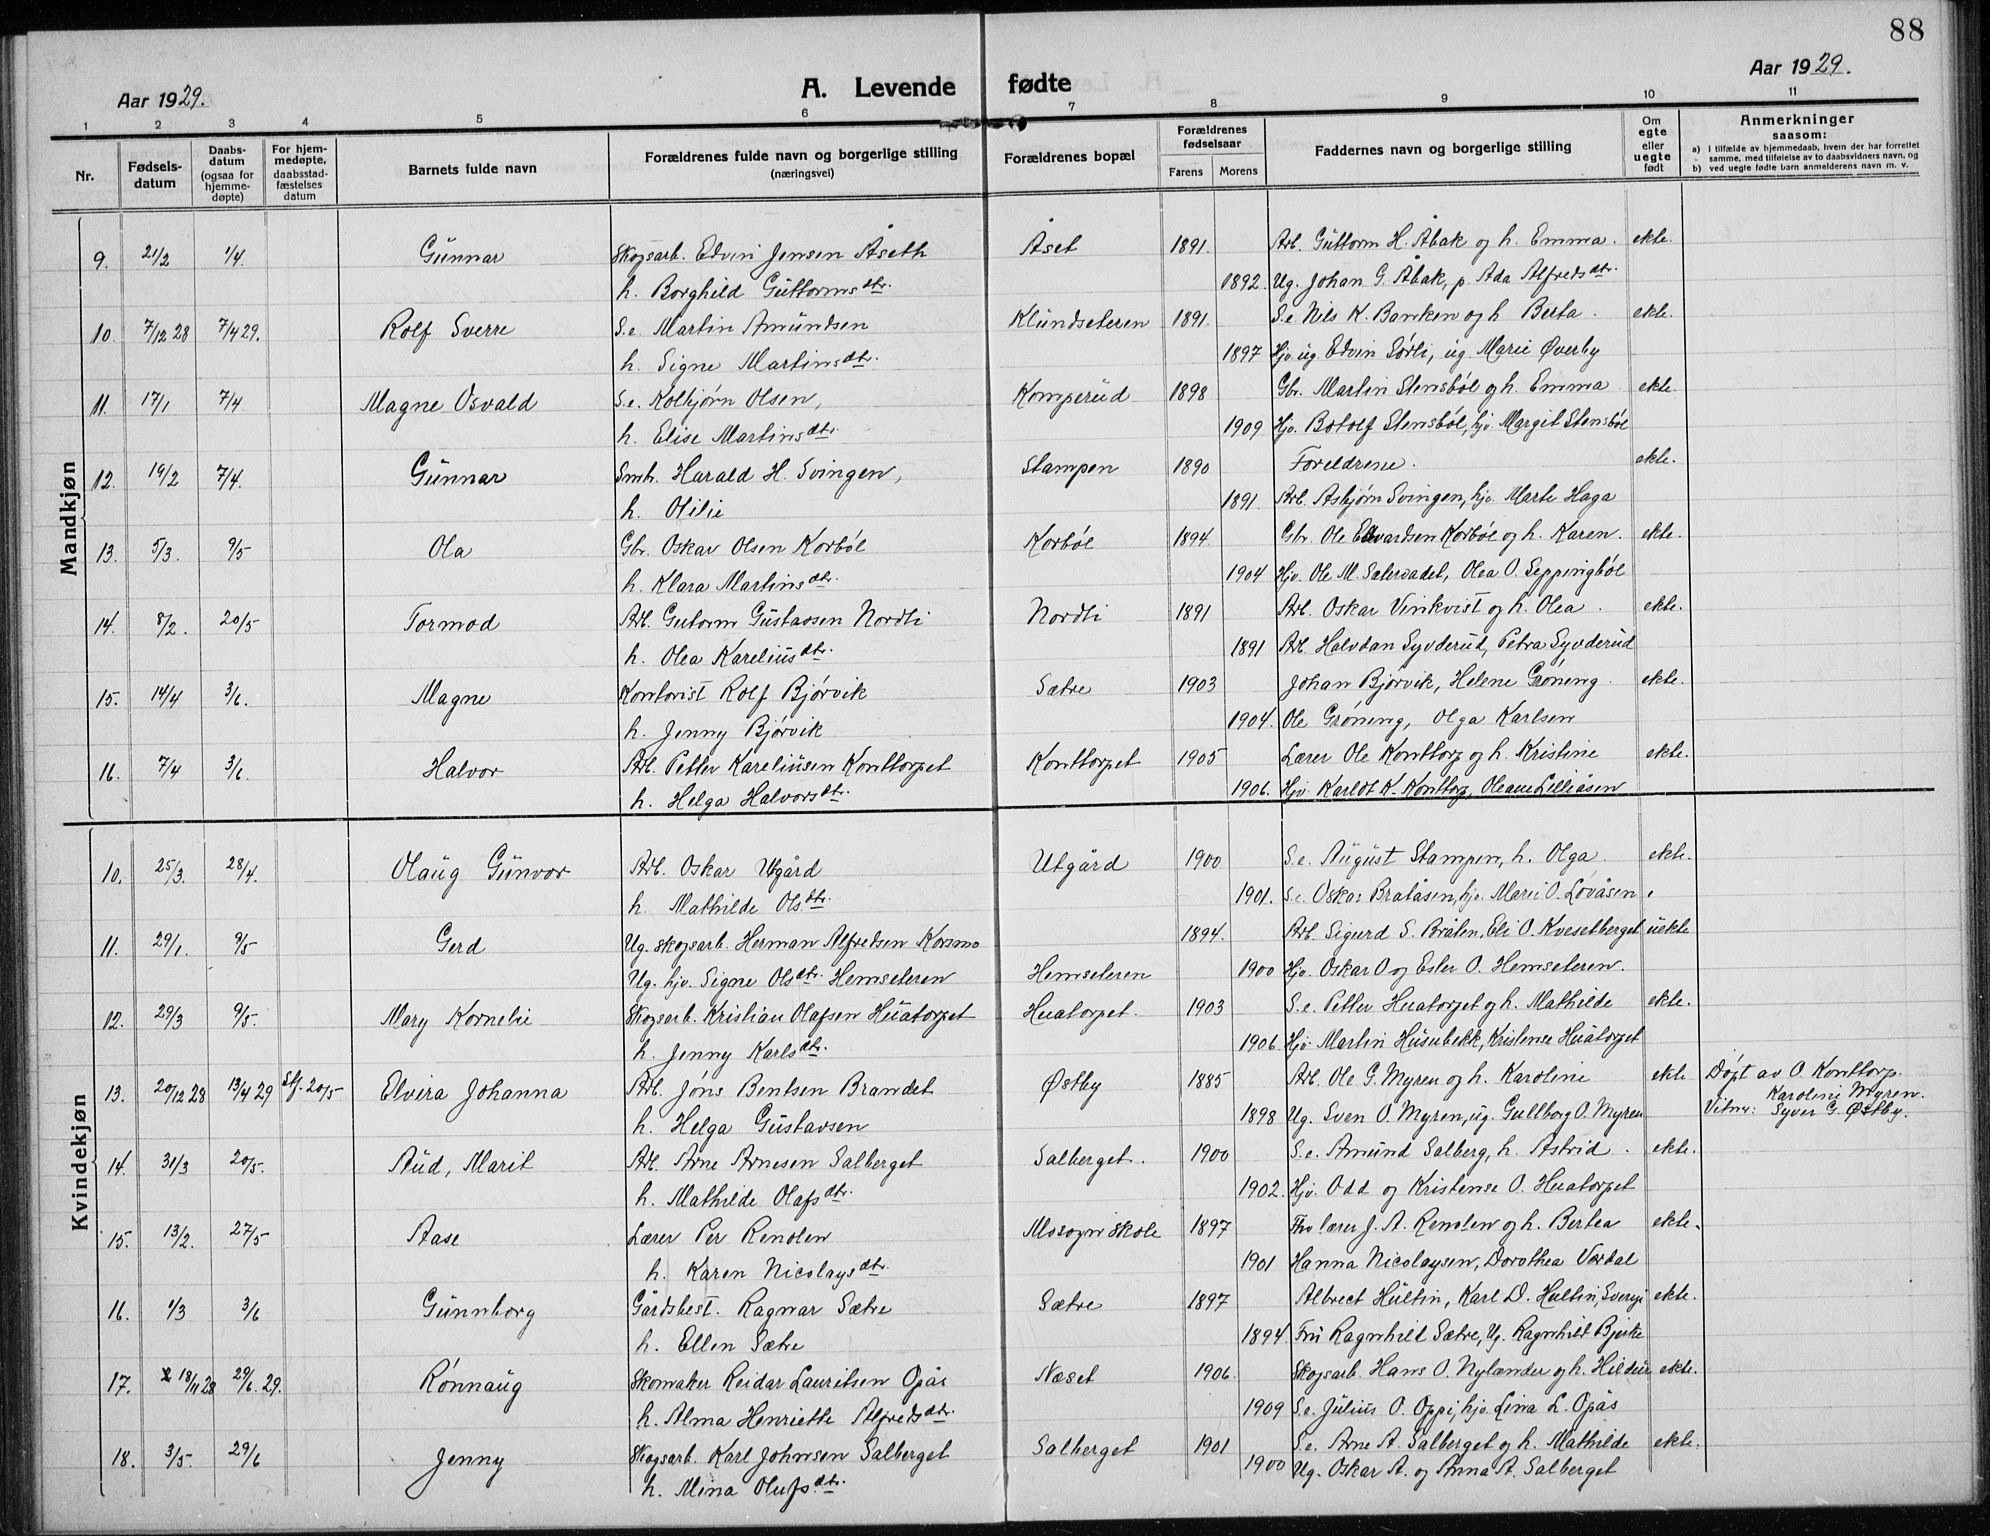 88
Aar 1929. A. Levende fødte Aar 1929.
1 2 3 4 5 6 7 8 9 10 11
Nr. Fødsels-datum Daabs-datum (ogsaa for hjemme-døpte) For hjem-medøpte, daabsstad-fæstelses datum Barnets fulde navn Forældrenes fulde navn og borgerlige stilling (næringsvei) Forældrenes bopæl Forældrenes fødselsaar Farens Morens Faddernes navn og borgerlige stilling Om egte eller uegte født Anmerkninger saasom: a) I tilfælde av hjemmedaab, hvem der har forrettet samme, med tilføielse av to daabsvidners navn, og b) ved uegte fødte barn anmelderens navn m. v.
Mandkjøn
9. 21/2 1/4. Gunnar Skogsarb. Edvin Jensen Åseth Åset 1891. Arb. Guttorm H. Åbak og h. Emma. ekte.
h. Borghild Guttormsdtr. 1892. Ug. Johan G. Åbak, p. Ada Alfredsdtr.
10. 7/12 28 7/4 29. Rolf Sverre S.e. Martin Amundsen Klundseteren 1891. S.e. Nils K. Banken og h. Berta. ekte.
h. Signe Martinsdtr. 1897 Hjv. ug. Edvin Sørli, ug. Marie Øverby
11. 17/1 7/4 Magne Osvald S.e. Kolbjørn Olsen, Komperud 1898 Gbr. Martin Stensbøl og h. Emma ekte.
h. Elise Martinsdtr. 1909 Hjv. Botolf Stensbøl, hjv. Margit Stensbøl
12. 19/2 7/4. Gunnar Smh. Harald H. Svingen, Stampen 1890 Foreldrene. ekte.
h. Olilie 1891. Arb. Asbjørn Svingen, hjv. Marte Haga
13. 5/3. 9/5 Ola Gbr. Oskar Olsen Korbøl Korbøl 1894. Gbr. Ole Edvardsen Korbøl og h. Karen. ekte.
h. Klara Martinsdtr. 1904 Hjv. Ole M. Sætervadet, Olea O. Seppingbøl
14. 8/2. 20/5 Tormod Arb. Gutorm Gustavsen Nordli Nordli 1891 Arb. Oskar Vinkvist og h. Olea. ekte.
h. Olea Kareliusdtr. 1891 Arb. Halvdan Syvderud, Petra Syvderud
15. 14/4 3/6. Magne Kontorist Rolf Bjørvik Sætre 1903 Johan Bjørvik, Helene Grøneng. ekte.
h. Jenny Bjørvik 1904. Ole Grøneng, Olga Karlsen
16. 7/4 3/6. Halvor Arb. Petter Kareliusen Konttorpet Konttorpet 1905 Lærer Ole Konttorp og h. Kristine ekte.
h. Helga Halvorsdtr. 1906. Hjv. Karldt K. Konttorp, Oleane Lilliåsen
Kvindekjøn
10. 25/3. 28/4. Olaug Gunvor Arb. Oskar Utgård Utgård 1900 S.e. August Stampen, h. Olga. ekte.
h. Mathilde Olsdtr. 1901. S.e. Oskar Bråtåsen, hjv. Marie O. Løvåsen
11. 29/1. 9/5 Gerd Ug. skogsarb. Herman Alfredsen Korsmo 1894. Arb. Sigurd S. Bråten, Eli O. Kvesetberget uekte
Ug. hjv. Signe Olsdtr. Hemseteren Hemseteren 1900 Hjv. Oskar O og Ester O. Hemseteren.
12. 29/3 9/5. Mary Kornelie Skogsarb. Kristian Olafsen Huatorpet Huatorpet. 1903 S.e. Petter Huatorpet og h. Mathilde ekte.
h. Jenny Karlsdtr. 1906. Hjv. Martin Husubekk, Kristense Huatorpet
13. 20/12 28 13/4 29 Stf. 20/5 Elvira Johanna Arb. Jöns Bentsen Brandet Østby 1885 Arb. Ole G. Myren og h. Karoline ekte Døpt av O. Konttorp.
h. Helga Gustavsen 1898 Ug. Sven O. Myren, ug. Gullborg O. Myren Vitner: Karoline Myren. Syver G. Østby.
14. 31/3 20/5. Aud, Marit Arb. Arne Arnesen Salberget Salberget. 1900 S.e. Amund Salberg, h. Astrid. ekte.
h. Mathilde Olafsdtr. 1902. Hjv. Odd og Kristense O. Huatorpet
15. 13/2. 27/5 Aase Lærer Per Renolen Mosogn skole 1897 Fhv lærer J. A. Renolen og h. Bertea ekte.
h. Karen Nicolaysdtr. 1901 Hanna Nicolaysen, Dorothea Verdal
16. 1/3 3/6 Gunnborg Gårdsbest. Ragnar Sætre Sætre 1897 Albrect Hultin, Karl D. Hultin, Sverge ekte.
h. Ellen Sætre 1894. Fru Ragnhild Sætre, Ug. Ragnhild Bjerke
17. 18/11 28 29/6. 29. Rønnaug Skomaker Reidar Lauritsen Opås Næset 1906. Skogsarb. Hans O. Nylander og h. Hildur ekte.
h. Alma Henriette Alfredsdtr. 1909 S.e. Julius O. Oppi, hjv. Lina L. Opås
18. 3/5. 29/6 Jenny Skogsarb. Karl Johnsen Salberget Salberget 1901 S.e. Arne A. Salberget og h. Mathilde ekte.
h. Mina Olufsdtr. 1900 Ug. Oskar A. og Anna A. Salberget